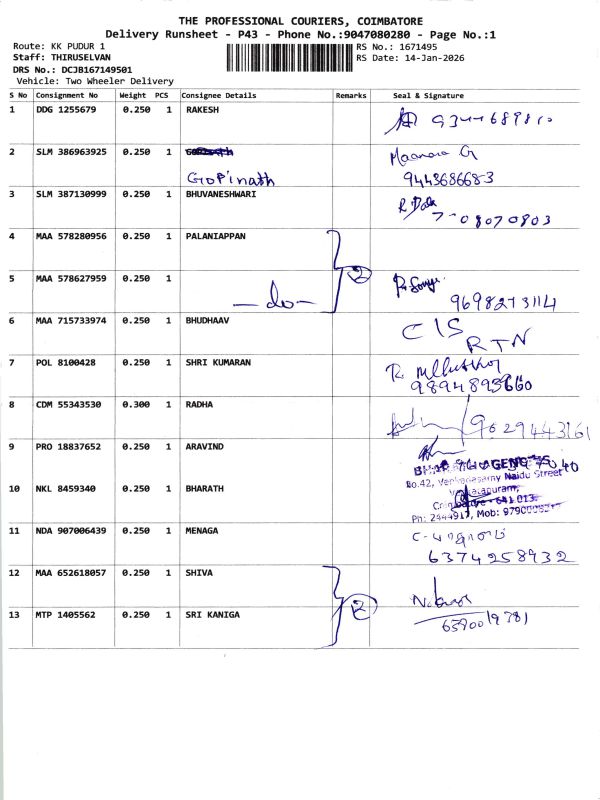 THE PROFESSIONAL COURIERS, COIMBATORE
Delivery Runsheet - P43 - Phone No.:9047080280 - Page No.:1
Route: KK PUDUR 1 RS No.: 1671495
Staff: THIRUSELVAN RS Date: 14-Jan-2026
DRS No.: DCJB167149501
Vehicle: Two Wheeler Delivery
S No Consignment No Weight PCS Consignee Details Remarks Seal & Signature
1 DDG 1255679 0.250 1 RAKESH
2 SLM 386963925 0.250 1
Gopinath 9443686683
3 SLM 387130999 0.250 1 BHUVANESHWARI
7708070803
4 MAA 578280956 0.250 1 PALANIAPPAN
2
5 MAA 578627959 0.250 1
-do- 9698273114
6 MAA 715733974 0.250 1 BHUDHAAV C/S
RTN
7 POL 8100428 0.250 1 SHRI KUMARAN
9894895660
8 CDM 55343530 0.300 1 RADHA 9629443161
9 PRO 18837652 0.250 1 ARAVIND
No.42, Venkatasamy Naidu Street
10 NKL 8459340 0.250 1 BHARATH
Coimbatore - 641 013.
Ph: 2444917, Mob:
11 NDA 907006439 0.250 1 MENAGA
6374258932
12 MAA 652618057 0.250 1 SHIVA
2
13 MTP 1405562 0.250 1 SRI KANIGA